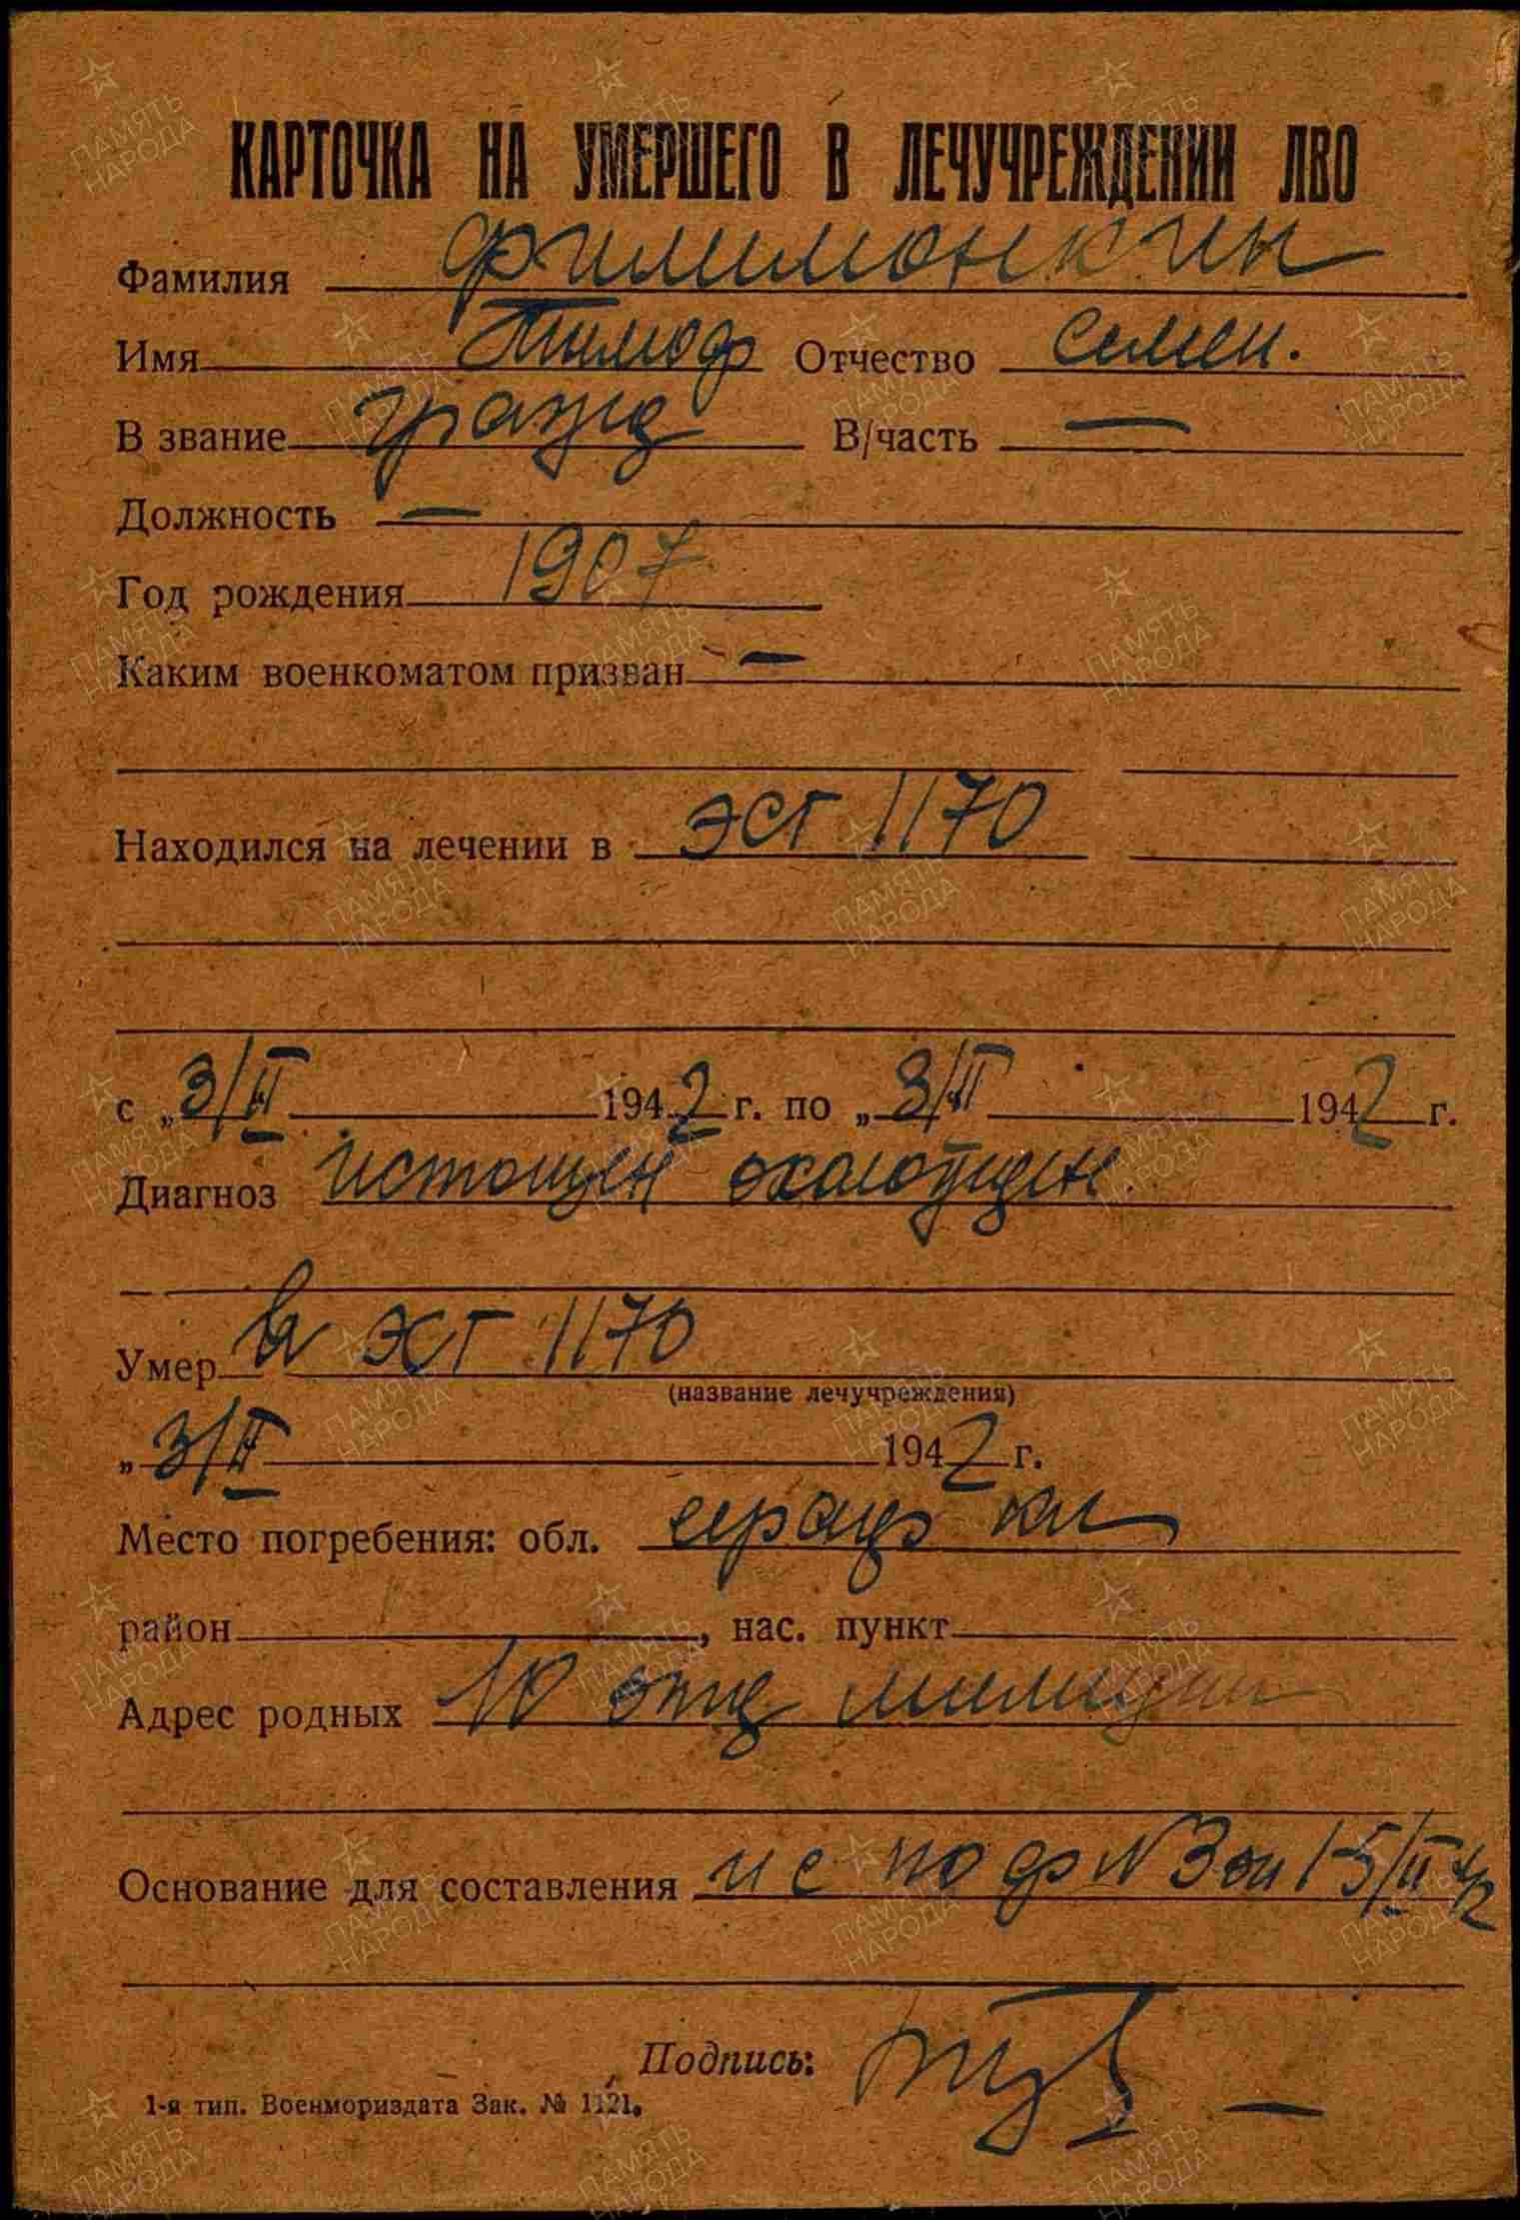 КАРТОЧКА НА УМЕРШЕГО В ЛЕЧУЧРЕЖДЕНИИ ЛВО
Фамилия Филимонкин
Имя Тимоф Отчество Семен.
В звание гражд В/часть —
Должность —
Год рождения 1907
Каким военкоматом призван —
Находился на лечении в ЭСГ 1170
с „3/II 1942 г. по „3/II 1942 г.
Диагноз истощен
Умер в ЭГ 1170
(название лечучреждения)
„3/II 1942 г.
Место погребения: обл. кл
район , нас. пункт
Адрес родных 10 отд милиции
Основание для составления и с по ф N 3 1-5/II 42
Подпись:
1-я тип. Военмориздата Зак. № 1121.
ПАМЯТЬ НАРОДА